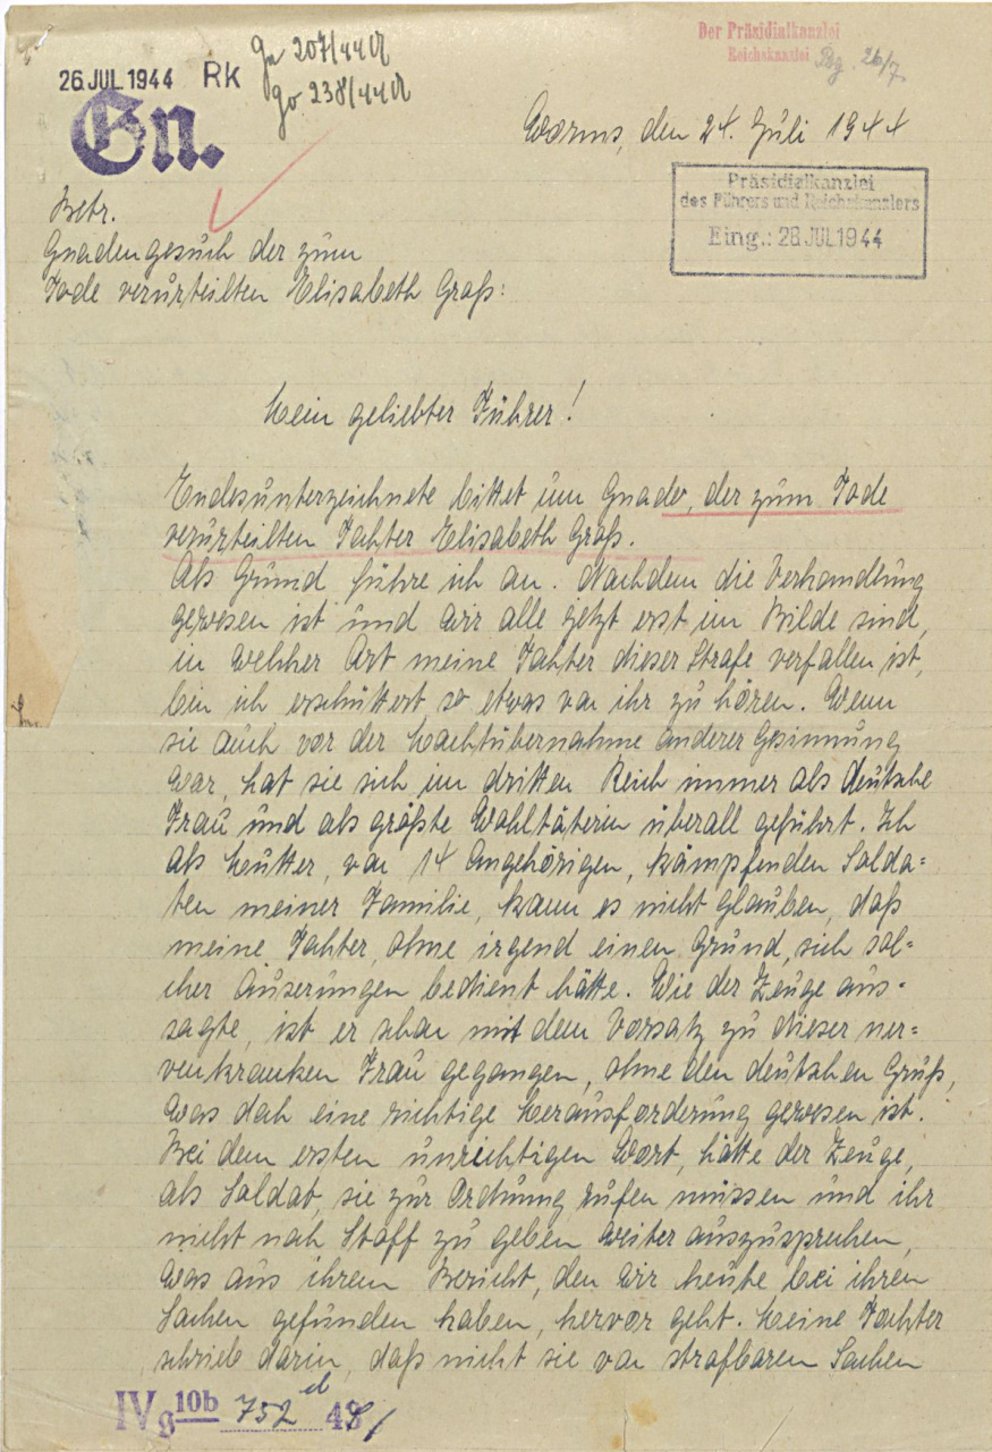 Der Präsidialkanzlei
Reichskanzlei
26/7.
26. JUL 1944 RK
Gn 207/44
238/44
Gn.
Worms, den 24. Juli 1944
Präsidialkanzlei
des Führers und Reichskanzlers
Eing.: 28 JUL 1944
Betr.
Gnadengesuch der zum
Tode verurteilten Elisabeth Groß:
Mein geliebter Führer!
Endesunterzeichnete bittet um Gnade, der zum Tode
verurteilten Tochter Elisabeth Groß.
Als Grund führe ich an. Nachdem die Verhandlung
gewesen ist und wir alle jetzt erst im Bilde sind,
in welcher Art meine Tochter dieser Strafe verfallen ist,
bin ich erschüttert so etwas von ihr zu hören. Wenn
sie auch vor der Machtübernahme anderer Gesinnung
war, hat sie sich im dritten Reich immer als deutsche
Frau und als größte Wohltäterin überall geführt. Ich
als Mutter, von 14 Angehörigen, kämpfenden Solda=
ten meiner Familie, kann es nicht glauben, daß
meine Tochter, ohne irgend einen Grund, sich sol=
cher Äuserungen bedient hätte. Wie der Zeuge aus=
sagte, ist er schon mit dem Vorsatz zu dieser ner=
venkranken Frau gegangen, ohne den deutschen Gruß,
was doch eine richtige Herausforderung gewesen ist.
Bei dem ersten unrichtigen Wort, hätte der Zeuge,
als Soldat, sie zur Ordnung rufen müssen und ihr
nicht noch Stoff zu geben weiter auszusprechen,
was aus ihrem Bericht, den wir heute bei ihren
Sachen gefunden haben, hervor geht. Meine Tochter
schrieb darin, daß nicht sie von strafbaren Sachen
IV g 10b 752